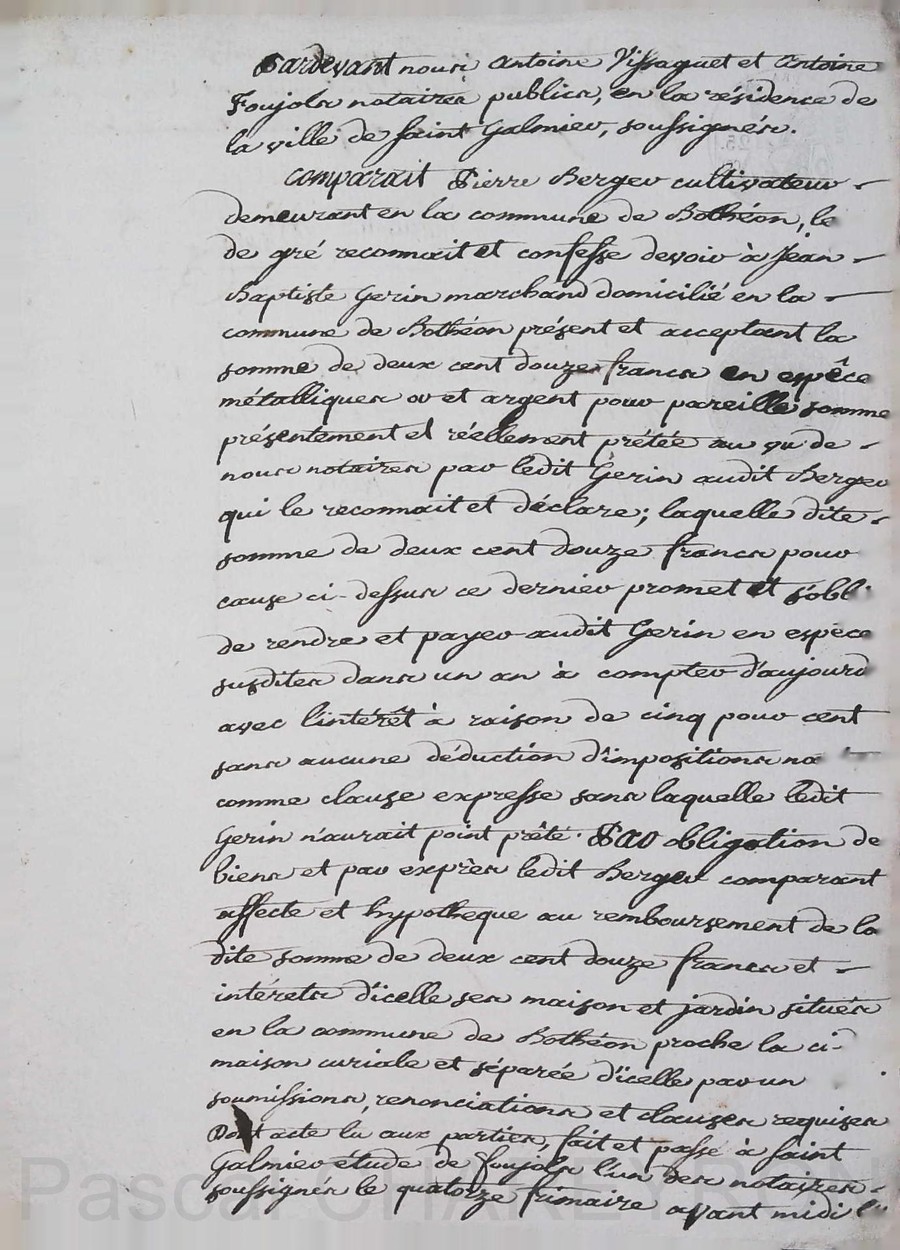 Pardevant nous Antoine Vissaguet et Antoine
Foujols notaires publics, en la résidence de
la ville de saint Galmier, soussignés.
comparait Pierre Berger cultivateur
demeurant en la commune de Bothéon, le
de gré reconnait et confesse devoir à Jean
Baptiste Gerin marchand domicilié en la
commune de Bothéon présent et acceptant la
somme de deux cent douze francs en espêce
métalliques or et argent pour pareille somme
présentement et réellement prétée au vu de
nous notaires par ledit Gerin audit Berger
qui le reconnait et déclare; laquelle dite
somme de deux cent douze francs pour
cause ci-dessus ce dernier promet et s'obli
de rendre et payer audit Gerin en espèce
susdites dans un an à compter d'aujourd
avec l'intérêt à raison de cinq pour cent
sans aucune déduction d'impositions na
comme clause expresse sans laquelle ledit
Gerin n'aurait point prêté. Par obligation de
biens et par exprès ledit Berger comparant
affecte et hypotheque au remboursement de la
dite somme de deux cent douze francs et
intérets d'icelle ses maison et jardin situés
en la commune de Bothéon proche la ci-
maison curiale et séparée d'icelle par un
soumissions, renonciations et clauses requises
Dont acte lu aux parties, fait et passé à saint
Galmier étude de foujols l'un des notaires
soussignés le quatorze frimaire avant midi
Pascal CHAREYRON